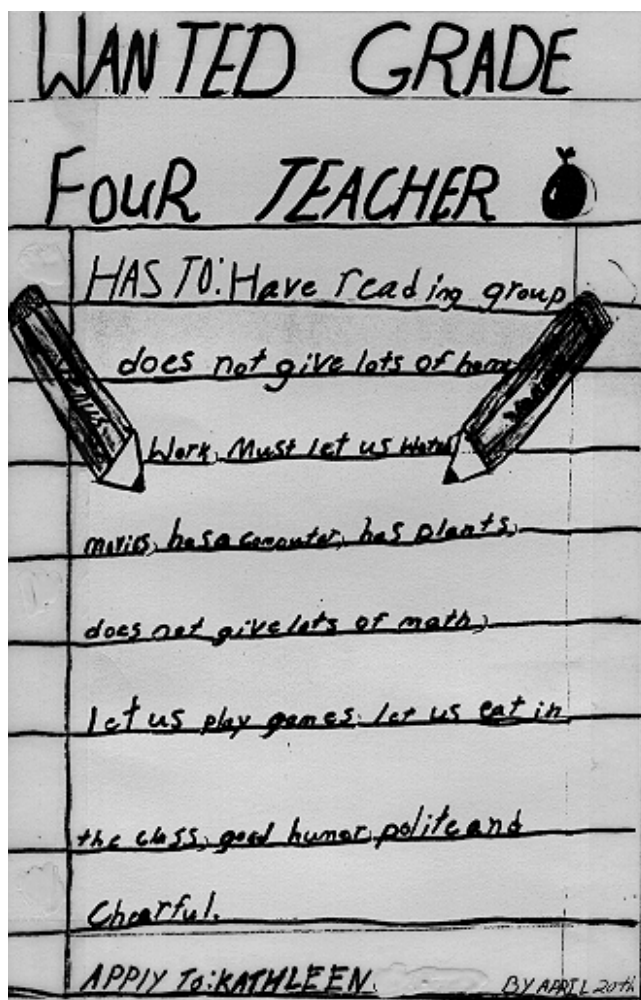 WANTED GRADE
FOUR TEACHER
HAS TO: Have reading group
does not give lots of home
Work, Must let us watch
movies, has a computer, has plants,
does not give lots of math,
let us play games, let us eat in
the class, good humor, polite and
Chearful.
APPIY TO: KATHLEEN. BY APRIL 20th